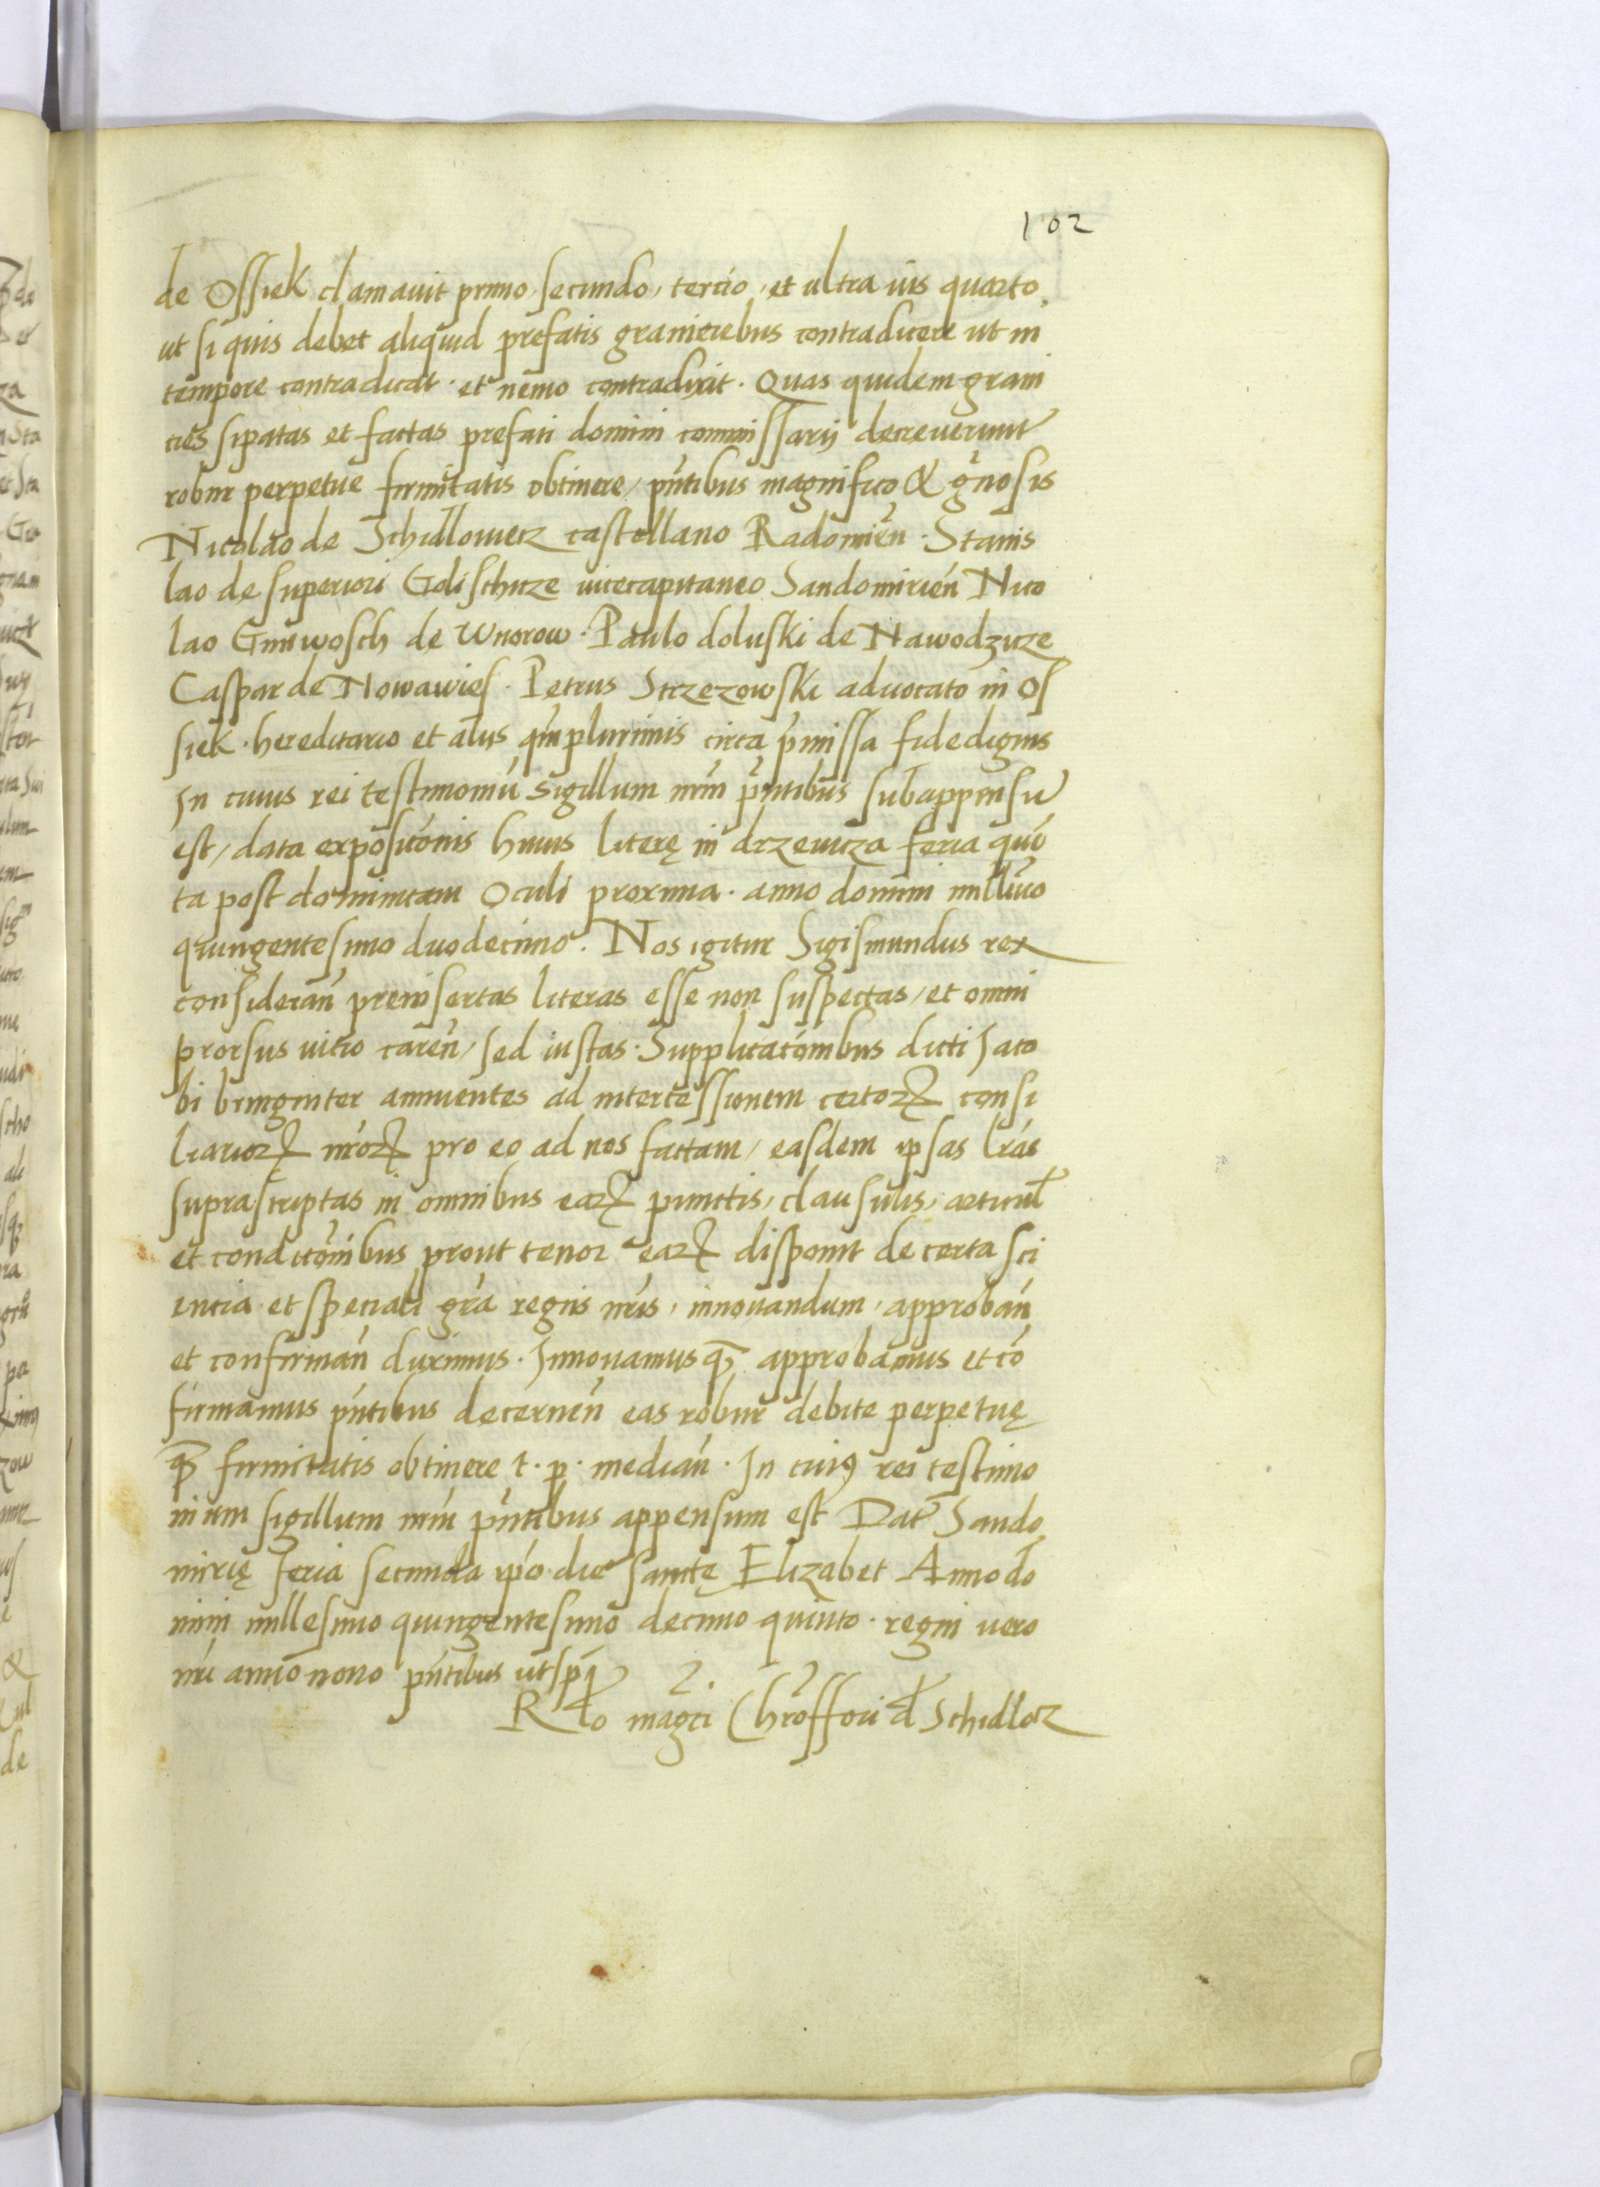 102
de Ossiek clamavit primo, secundo, tercio, et ultra vis quarto
ut si quis debet aliquid prefatis graniciebus contradicere ut in
tempore contradicat · et nemo contradixit · Quas quidem grani
cies sipatas et factas prefati domini commissarij decreverunt
robur perpetue firmitatis obtinere, pn̄tibus magnifico & gn̄osis
Nicolao de Schidlowiecz castellano Radomień · Stanis
lao de superiori Golischicze vicecapitaneo Sandomirień Nico
lao Gniiwosch de Wnorow · Paulo doluski de Nawodzicze
Caspar de Nowawies · Petrus Strzezowski advocato in Os
siek · hereditario et aliis qm̄plurimis circa pr̄missa fidedignis
In cuius rei testimoniū sigillum nr̄m pn̄tibus subappensū
est, data expositōnis huius literę in drzevicza feria quī
ta post dominicam Oculi proxima · anno domini mill̄mo
quingentesimo duodecimo · Nos igitur Sigismundus rex
considerań preinsertas literas esse non suspectas, et omni
prorsus vitio careń, sed iustas · Supplicatōnibus dicti Jaco
bi beningniter annuentes ad intercessionem certorꝝ consi
liariorꝝ nr̄orꝝ pro eo ad nos factam, easdem ipsas lr̄as
suprascriptas in omnibus earꝝ punctis, clausulis, articul̄
et conditōnibus prout tenor earꝝ disponit de certa sci
encia et speciali gr̄a regiis nr̄is, innovandum, approbań
et confirmań duximus · Innovamusqꝫ approbamus et cō
firmamus pn̄tibus decerneń eas robur debite perpetuę
qꝫ firmitatis obtinere t · p · mediań · In cuiꝰ rei testimo
nium sigillum nr̄m pn̄tibus appensum est Dat̄ Sando
mirię feria secunda ip̄o die sanctę Elizabet Anno do
mini millesimo quingentesimo decimo quinto · regni vero
nr̄i anno nono pn̄tibus ut spͣ
R̄lo mag̅ci Chr̄offori d̄ Schidlocz